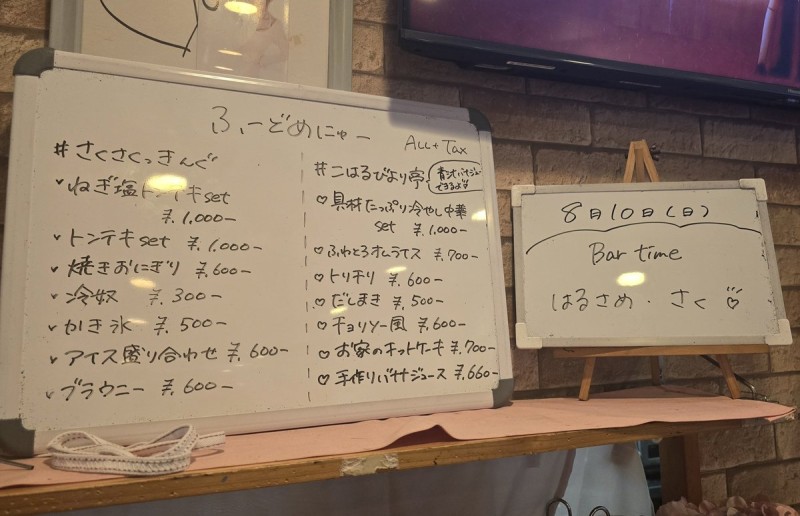 ふーどめにゅー
ALL+TAX
#さくさくっきんぐ
ねぎ塩トンテキset
¥.1,000-
トンテキset ¥.1,000-
焼きおにぎり ¥.600-
冷奴 ¥.300-
かき氷 ¥.500-
アイス盛り合わせ ¥.600-
ブラウニー ¥.600-
#こはるびより亭
できるよ
具材たっぷり冷やし中華
set ¥.1,000-
ふわとろオムライス ¥.700-
トリチリ ¥.600-
だしまき ¥.500-
チョリソー風 ¥.600-
お家のホットケーキ ¥.700-
手作りバナナジュース ¥.660-
8月10日(日)
Bar time
はるさめ・さく